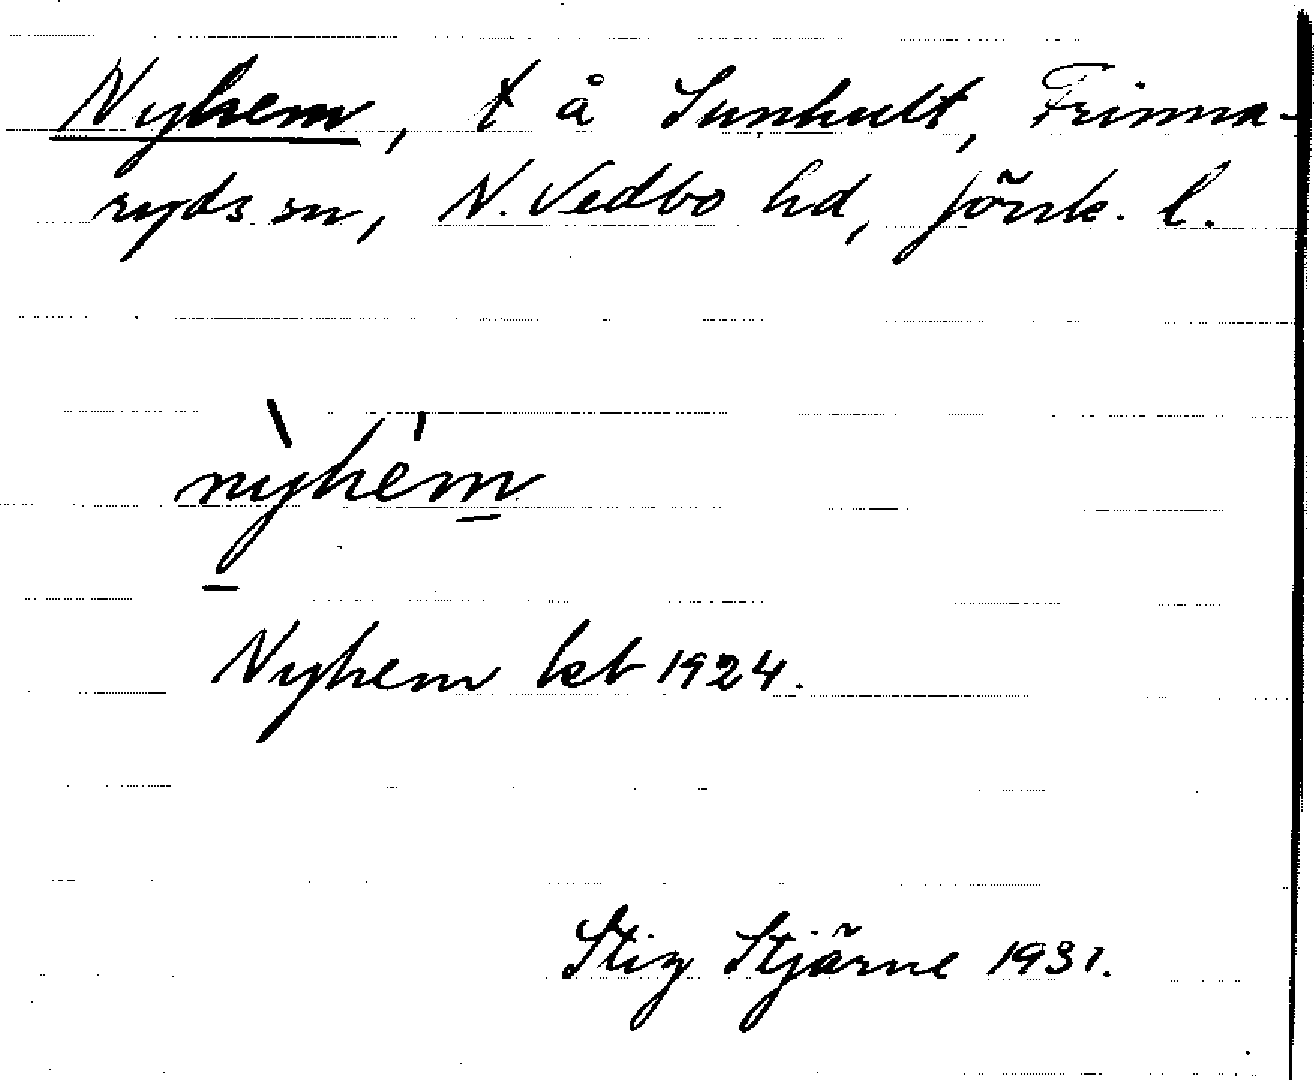 Nyhem, t å Sunhult, Frinna-
ryds sn, N. Vedbo hd, Jönk. l.
nỳhém
Nyhem kb 1924.
Stig Stjärne 1931.